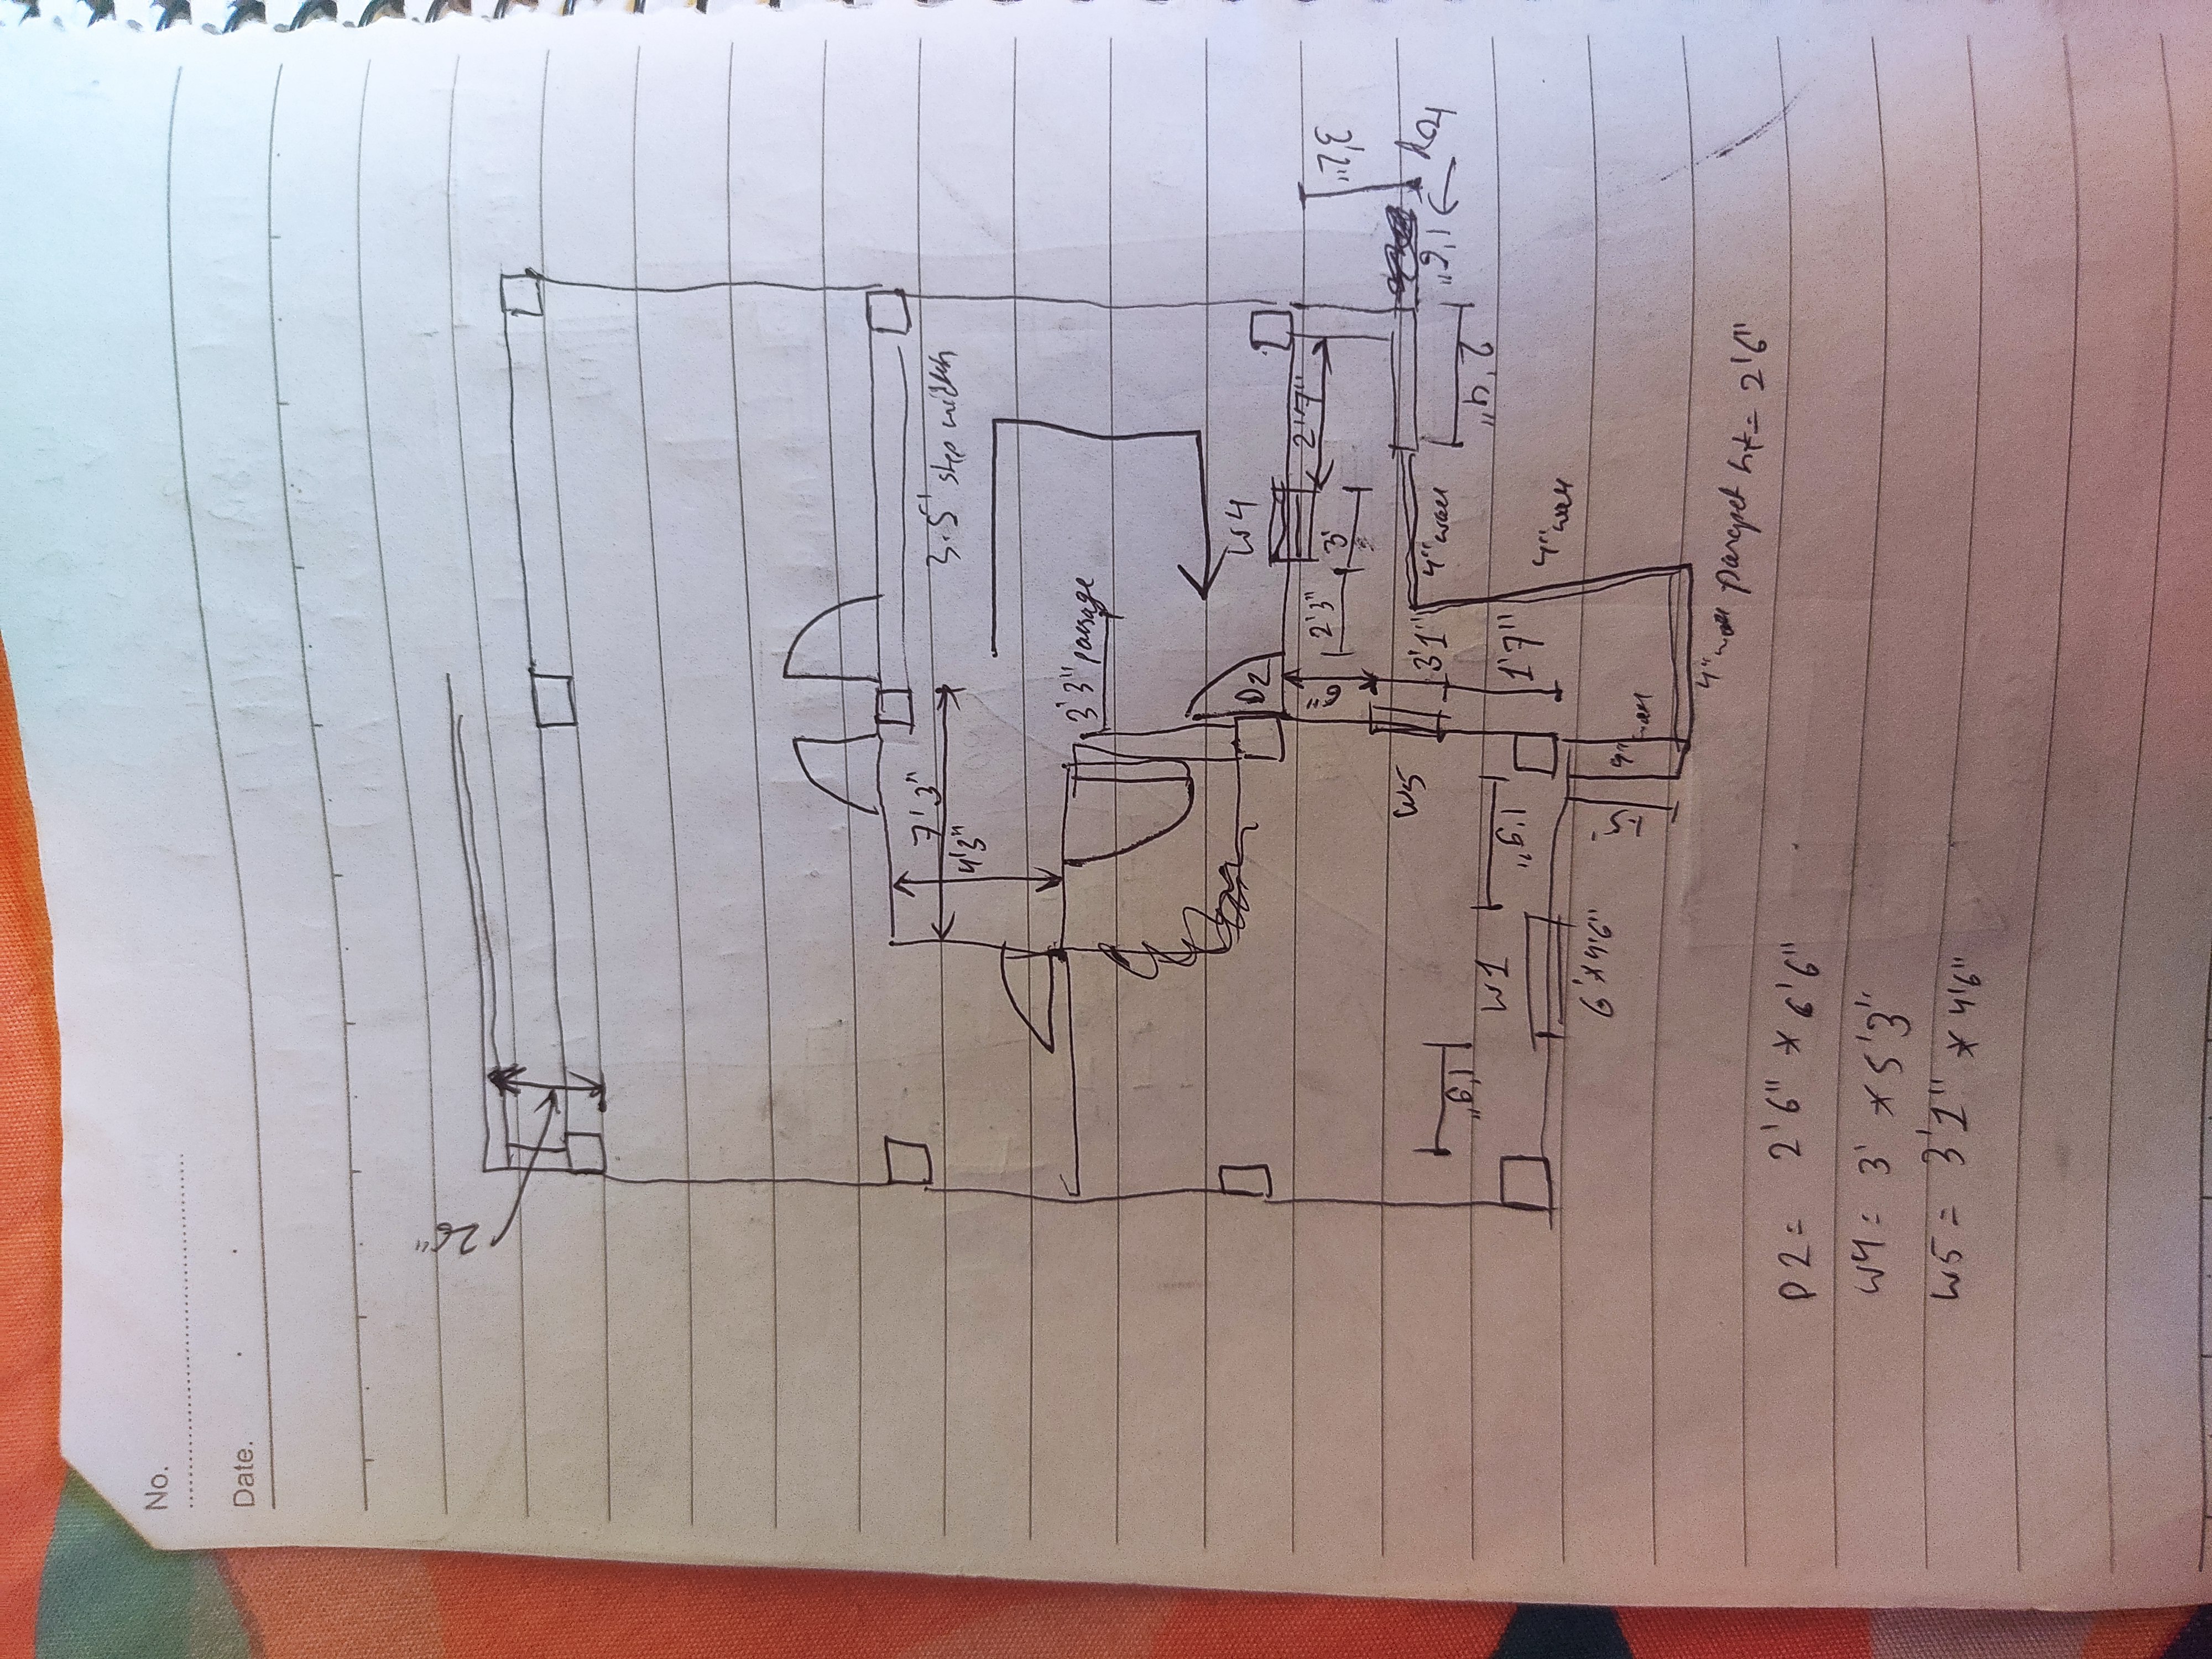 No.
Date.
26"
7'3"
4'3"
3.5' step width
3'3" passage
D2
W4
6"
2'3"
3'
2'7"
3'2"
W5
3'1"
4" wall
1'6"
2'4"
1'9"
W1
1'9"
1'7"
4" wall
6'*4'6"
1.5'
wall
4" wall parapet ht = 2'6"
D2 = 2'6" * 6'6"
W4 = 3' * 5'3"
W5 = 3'1" * 4'6"